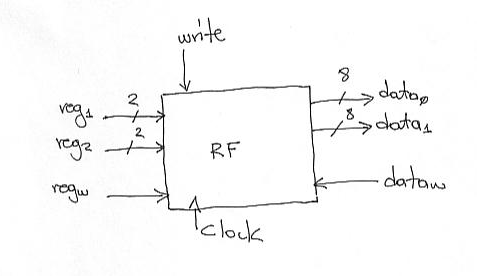 write
reg1
2
reg2
2
regw
RF
8
data0
8
data1
dataw
clock